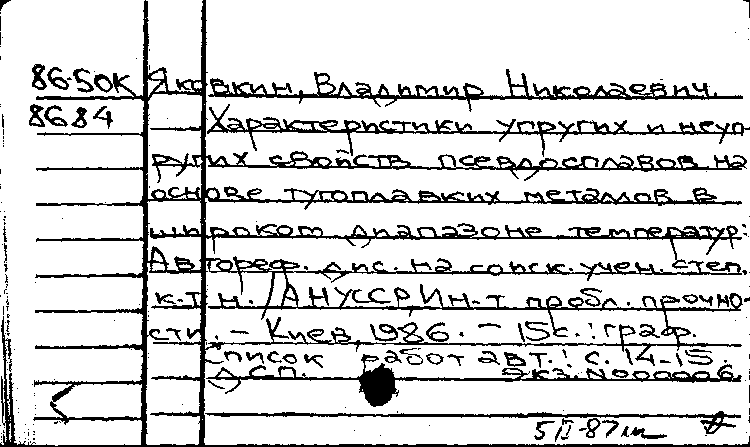 86-50К Яковкин, Владимир Николаевич.
8684 Характеристики упругих и неуп-
ругих свойств псевдосплавов на
основе тугоплавких металлов в
широком диапазоне температур:
Автореф. дис. на соиск. учен. степ.
к.т.н. /АН УССР, Ин-т пробл. прочно-
сти. – Киев, 1986. – 15с.: граф.
Список работ авт.: с. 14-15.
Д.С.П. Экз. N000006.
5 II-87